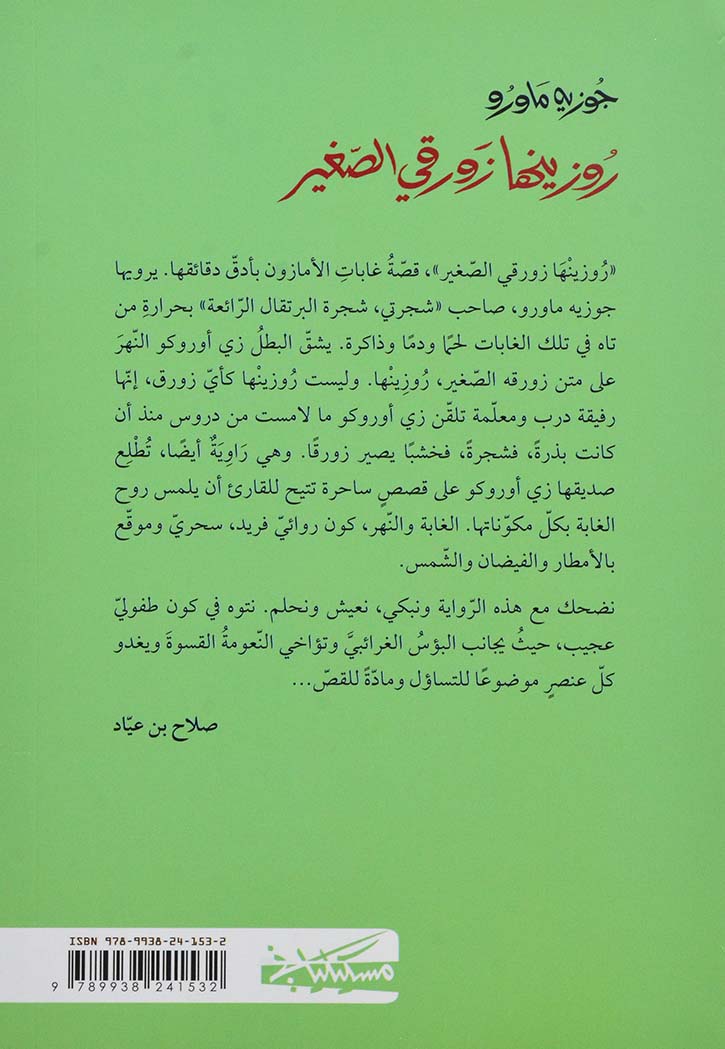 جُوزيه مَاورُو
رُوزينها زَورقي الصّغير
«رُوزينْهَا زورقي الصّغير»، قصّةُ غاباتِ الأمازون بأدقّ دقائقها. يرويها
جوزيه ماورو، صاحب «شجرتي، شجرة البرتقال الرّائعة» بحرارةِ من
تاه في تلك الغابات لحمًا ودمًا وذاكرة. يشقّ البطلُ زي أوروكو النّهرَ
على متن زورقه الصّغير، رُوزِينْها. وليست رُوزينْها كأيّ زورق، إنّها
رفيقة درب ومعلّمة تلقّن زي أوروكو ما لامست من دروس منذ أن
كانت بذرةً، فشجرةً، فخشبًا يصير زورقًا. وهي رَاوِيَةٌ أيضًا، تُطْلِع
صديقها زي أوروكو على قصصٍ ساحرة تتيح للقارئ أن يلمس روح
الغابة بكلّ مكوّناتها. الغابة والنّهر، كون روائيّ فريد، سحريّ وموقّع
بالأمطار والفيضان والشّمس.
نضحك مع هذه الرّواية ونبكي، نعيش ونحلم. نتوه في كون طفوليّ
عجيب، حيثُ يجانب البؤسُ الغرائبيَّ وتؤاخي النّعومةُ القسوةَ ويغدو
كلّ عنصرٍ موضوعًا للتساؤل ومادّةً للقصّ...
صلاح بن عيّاد
ISBN 978-9938-24-153-2
9 789938 241532